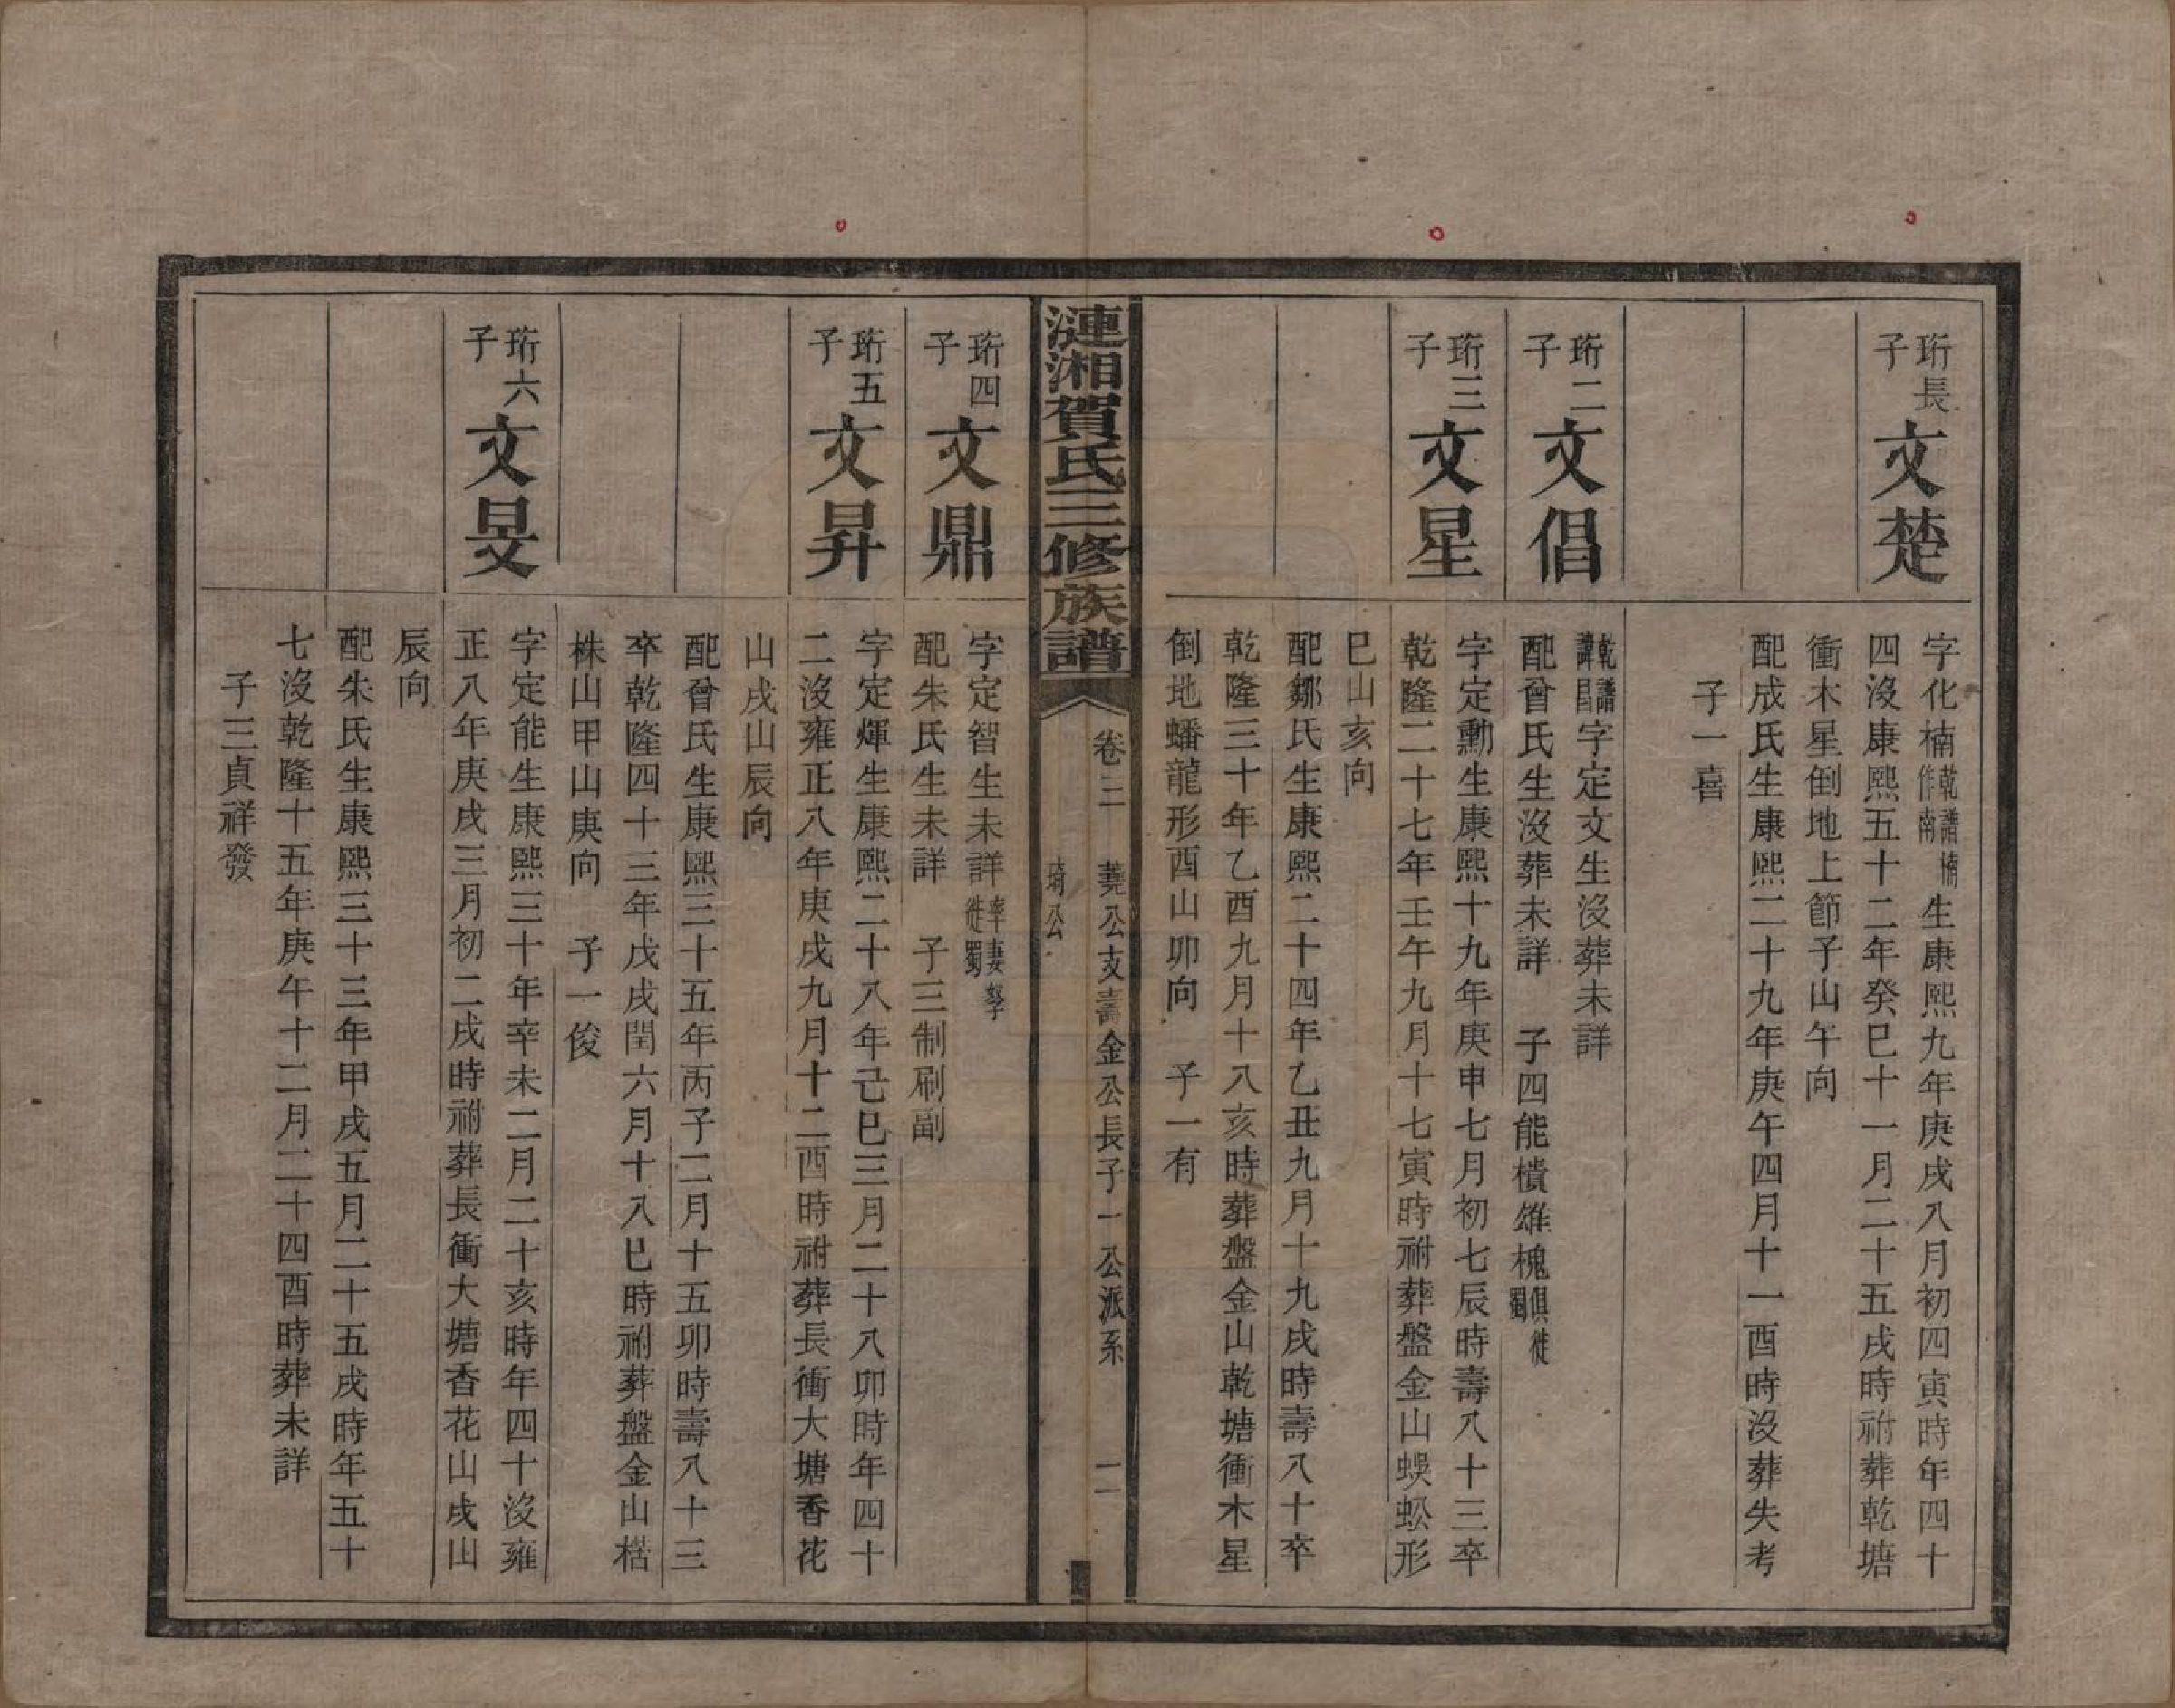 珩長子
文楚
字化楠乾譜楠作南生康熙九年庚戌八月初四寅時年四十
四沒康熙五十二年癸巳十一月二十五戌時祔葬乾塘
衝木星倒地上節子山午向
配成氏生康熙二十九年庚午四月十一酉時沒葬失考
子一喜
珩二子
文倡
乾譜諱昌字定文生沒葬未詳
配曾氏生沒葬未詳 子四能樻雄槐俱徙蜀
珩三子
文星
字定勳生康熙十九年庚申七月初七辰時壽八十三卒
乾隆二十七年壬午九月十七寅時祔葬盤金山蜈蚣形
巳山亥向
配鄒氏生康熙二十四年乙丑九月十九戌時壽八十卒
乾隆三十年乙酉九月十八亥時葬盤金山乾塘衝木星
倒地蟠龍形酉山卯向 子一有
漣湘賀氏三修族譜
卷三 蕘公支壽金公長子一公派系 二
琦公
珩四子
文鼎
字定智生未詳率妻孥徙蜀
配朱氏生未詳 子三制刷副
珩五子
文昇
字定煇生康熙二十八年己巳三月二十八卯時年四十
二沒雍正八年庚戌九月十二酉時祔葬長衝大塘香花
山戌山辰向
配曾氏生康熙三十五年丙子二月十五卯時壽八十三
卒乾隆四十三年戊戌閏六月十八巳時祔葬盤金山楛
株山甲山庚向 子一俊
珩六子
文旻
字定能生康熙三十年辛未二月二十亥時年四十沒雍
正八年庚戌三月初二戌時祔葬長衝大塘香花山戌山
辰向
配朱氏生康熙三十三年甲戌五月二十五戌時年五十
七沒乾隆十五年庚午十二月二十四酉時葬未詳
子三貞祥發